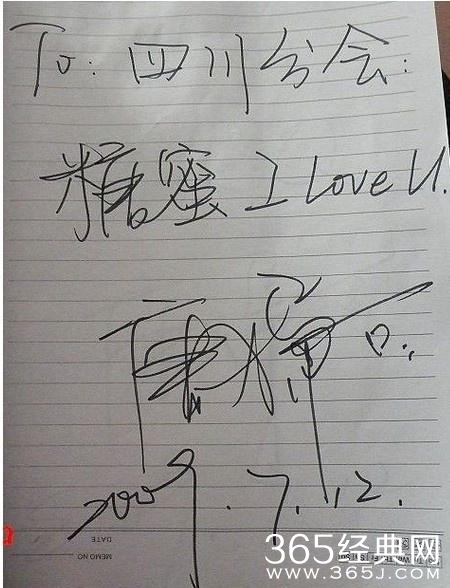 To: 四川分会:
糖蜜 I Love U.
2009.7.12.
DATE
MEMO NO
365经典网
WWW.365J.COM